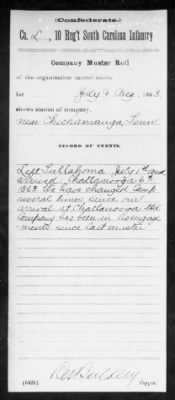 (Confederate.)
Co. L, 10 Reg't South Carolina Infantry
Company Muster Roll
of the organization named above,
for July & Aug, 1863
station of company,
near Chickamauga, Tenn
RECORD OF EVENTS.
Left Tullahoma July 1st and
arrived Chattanooga 6th
1863. We have changed Camp
several times since our
arrival at Chattanooga the
Company has been in no engage
ments since last muster
(642)
Copyist.